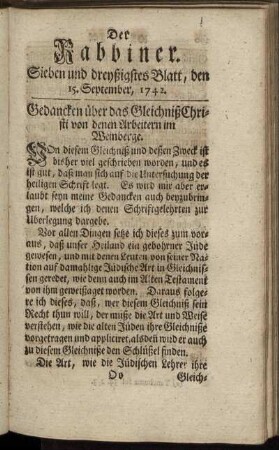 Der
Rabbiner.
Sieben und dreyßigstes Blatt, den
15. September, 1742.
Gedancken über das Gleichniß Chri-
sti von denen Arbeitern im
Weinberge.
VOn diesem Gleichniß und dessen Zweck ist
bisher viel geschrieben worden, und es
ist gut, daß man sich auf die Untersuchung der
heiligen Schrift legt. Es wird mir aber er-
laubt seyn meine Gedancken auch beyzubrin-
gen, welche ich denen Schriftgelehrten zur
Uberlegung dargebe.
Vor allen Dingen setze ich dieses zum vor-
aus, daß unser Heiland ein gebohrner Jude
gewesen, und mit denen Leuten von seiner Na-
tion auf damahlige Jüdische Art in Gleichnis-
sen geredet, wie denn auch im Alten Testament
von ihm geweißaget worden. Daraus folge-
re ich dieses, daß, wer diesem Gleichniß sein
Recht thun will, der müße die Art und Weise
verstehen, wie die alten Jüden ihre Gleichniße
vorgetragen und appliciret, alsden wird er auch
zu diesem Gleichniße den Schlüßel finden.
Die Art, wie die Jüdischen Lehrer ihre
Oo
Gleich-